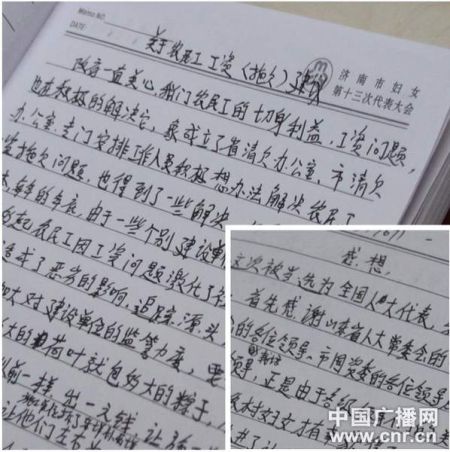 Memo NO.
DATE
济南市妇女
第十三次代表大会
关于农民工工资(拖欠)建议
政府一直关心我们农民工的切身利益,工资问题,
也在积极的解决它,象成立了省清欠办公室、市清欠
办公室,专门安排工作人员积极想办法解决农民工
拖欠问题,也得到了一些解决
由于一些个别建设单
起农民工因工资问题激化了
造成了恶劣的影响,追踪源头
加大对建设单位的监管力度,要
大的荷叶就包多大的粽子,
一样出一元钱
让他们左右
感想
这次被当选为全国人大代表,
首先感谢山东省人大常委会的
的各位领导、市国资委的各位领导
领导,正是由于
农村妇女才有
中国广播网
www.cnr.cn